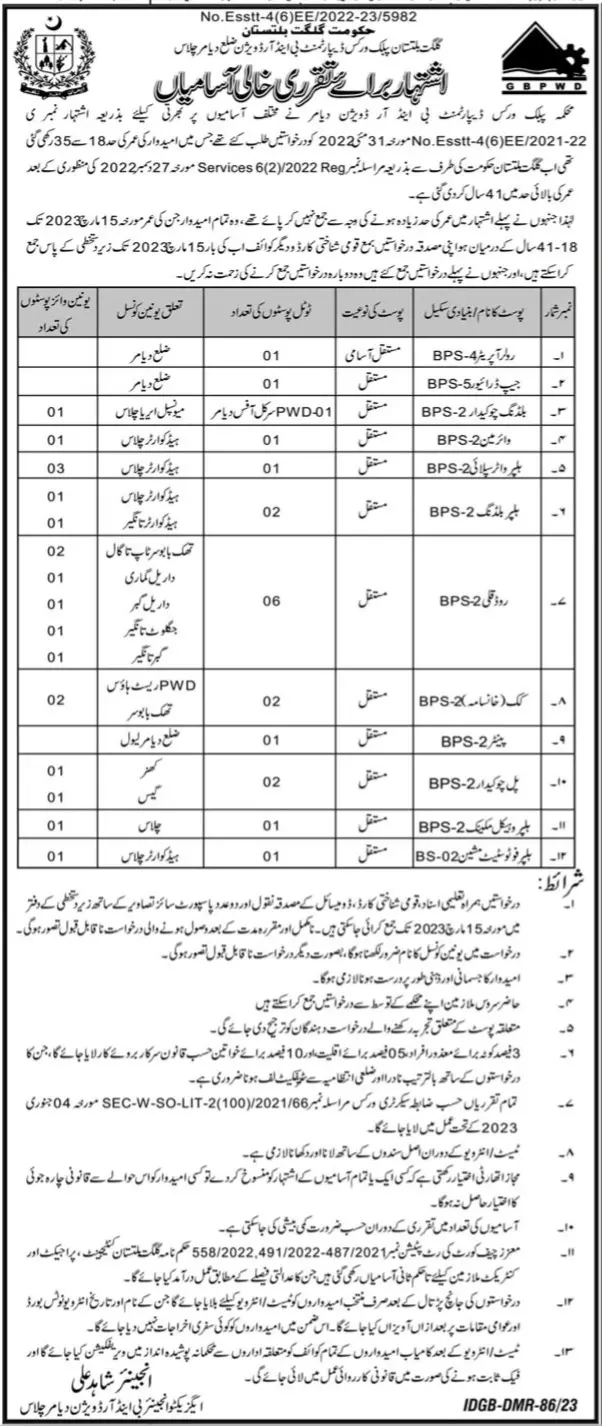 No.Esstt-4(6)EE/2022-23/5982
حکومت گلگت بلتستان
گلگت بلتستان پبلک ورکس ڈیپارٹمنٹ بی اینڈ آر ڈویژن ضلع دیامر چلاس
اشتہار برائے تقرری خالی آسامیاں
GBPWD
محکمہ پبلک ورکس ڈیپارٹمنٹ بی اینڈ آر ڈویژن دیامر نے مختلف آسامیوں پر بھرتی کیلئے بذریعہ اشتہار نمبری
No.Esstt-4(6)EE/2021-22 مورخہ 31 مئی 2022 کو درخواستیں طلب کئے تھے جس میں امیدوار کی عمر کی حد 18 سے 35 رکھی گئی
تھی اب گلگت بلتستان حکومت کی طرف سے بذریعہ مراسلہ نمبر Services 6(2)/2022 Reg مورخہ 27 دسمبر 2022 کی منظوری کے بعد
عمر کی بالائی حد میں 41 سال کر دی گئی ہے۔
لہٰذا جنہوں نے پہلے اشتہار میں عمر کی حد زیادہ ہونے کی وجہ سے جمع نہیں کر پائے تھے، وہ تمام امیدوار جن کی عمر مورخہ 15 مارچ 2023 تک
18-41 سال کے درمیان ہو اپنی مصدقہ درخواستیں بمع قومی شناختی کارڈ و دیگر کوائف اب کی بار 15 مارچ 2023 تک زیر دستخطی کے پاس جمع
کرا سکتے ہیں، اور جنہوں نے پہلے درخواستیں جمع کئے ہیں وہ دوبارہ درخواستیں جمع کرنے کی زحمت نہ کریں۔
نمبر شمار پوسٹ کا نام/بنیادی سکیل پوسٹ کی نوعیت ٹوٹل پوسٹوں کی تعداد تعلق یونین کونسل یونین وائز پوسٹوں کی تعداد
۱۔ رولر آپریٹر BPS-4 مستقل آسامی 01 ضلع دیامر
۲۔ جیپ ڈرائیور BPS-5 مستقل 01 ضلع دیامر
۳۔ بلڈنگ چوکیدار BPS-2 مستقل PWD-01 سرکل آفس دیامر میونسپل ایریا چلاس 01
۴۔ وائرمین BPS-2 مستقل 01 ہیڈ کوارٹر چلاس 01
۵۔ ہیلپر واٹر سپلائی BPS-2 مستقل 01 ہیڈ کوارٹر چلاس 03
۶۔ ہیلپر بلڈنگ BPS-2 مستقل 02 ہیڈ کوارٹر چلاس 01
ہیڈ کوارٹر تانگیر 01
۷۔ روڈ قلی BPS-2 مستقل 06 تھک بابوسر ٹاپ تا گال 02
داریل گماری 01
داریل گبر 01
جگلوٹ تانگیر 01
گبر تانگیر 01
۸۔ کک (خانسامہ) BPS-2 مستقل 02 PWD ریسٹ ہاؤس
تھک بابوسر 02
۹۔ پینٹر BPS-2 مستقل 01 ضلع دیامر لیول
۱۰۔ پل چوکیدار BPS-2 مستقل 02 کھنر 01
گیس 01
۱۱۔ ہیلپر وہیکل مکینک BPS-2 مستقل 01 چلاس 01
۱۲۔ ہیلپر فوٹو سٹیٹ مشین BS-02 مستقل 01 ہیڈ کوارٹر چلاس 01
شرائط:
۱۔ درخواستیں ہمراہ تعلیمی اسناد، قومی شناختی کارڈ، ڈومیسائل کے مصدقہ نقول اور دو عدد پاسپورٹ سائز تصاویر کے ساتھ زیر دستخطی کے دفتر
میں مورخہ 15 مارچ 2023 تک جمع کرائی جا سکتی ہیں۔ نامکمل اور مقررہ مدت کے بعد وصول ہونے والی درخواست ناقابل قبول تصور ہوگی۔
۲۔ درخواست میں یونین کونسل کا نام ضرور لکھنا ہوگا، بصورت دیگر درخواست ناقابل قبول تصور ہوگی۔
۳۔ امیدوار کا جسمانی اور ذہنی طور پر درست ہونا لازمی ہوگا۔
۴۔ حاضر سروس ملازمین اپنے محکمے کے توسط سے درخواستیں جمع کرا سکتے ہیں
۵۔ متعلقہ پوسٹ کے متعلق تجربہ رکھنے والے درخواست دہندگان کو ترجیح دی جائے گی۔
۶۔ 3 فیصد کوٹہ برائے معذور افراد، 05 فیصد برائے اقلیت اور 10 فیصد برائے خواتین حسب قانون سرکار بروئے کار لایا جائے گا، جن کا
درخواستوں کے ساتھ بالترتیب نادرا اور ضلعی انتظامیہ سے سرٹیفکیٹ لف ہونا ضروری ہے۔
۷۔ تمام تقرریاں حسب ضابطہ سیکرٹری ورکس مراسلہ نمبر SEC-W-SO-LIT-2(100)/2021/66 مورخہ 04 جنوری
2023 کے تحت عمل میں لایا جائے گا۔
۸۔ ٹیسٹ/انٹرویو کے دوران اصل سندوں کے ساتھ لانا اور دکھانا لازمی ہے۔
۹۔ مجاز اتھارٹی اختیار رکھتی ہے کہ کسی ایک یا تمام آسامیوں کے اشتہار کو منسوخ کر دے تو کسی امیدوار کو اس حوالے سے قانونی چارہ جوئی
کا اختیار حاصل نہ ہوگا۔
۱۰۔ آسامیوں کی تعداد میں تقرری کے دوران حسب ضرورت کمی بیشی کی جا سکتی ہے۔
۱۱۔ معزز چیف کورٹ کی رٹ پٹیشن نمبر 558/2022,491/2022-487/2021 حکم نامہ گلگت بلتستان کنٹیجنٹ، پراجیکٹ اور
کنٹریکٹ ملازمین کیلئے تا حکم ثانی آسامیاں رکھی گئی ہیں جن کا عدالتی فیصلے کے مطابق عمل درآمد کیا جائے گا۔
۱۲۔ درخواستوں کی جانچ پڑتال کے بعد صرف منتخب امیدواروں کو ٹیسٹ/انٹرویو کیلئے بلایا جائے گا جن کے نام اور تاریخ انٹرویو نوٹس بورڈ
اور عوامی مقامات پر بعد ازاں آویزاں کیا جائے گا۔ اس ضمن میں امیدواروں کو کوئی سفری اخراجات نہیں دیا جائے گا۔
۱۳۔ ٹیسٹ/انٹرویو کے بعد کامیاب امیدواروں کے تمام کوائف کو متعلقہ اداروں سے محکمانہ پوشیدہ انداز میں ویریفکیشن کیا جائے گا اور
فیک ثابت ہونے کی صورت میں قانونی کارروائی عمل میں لائی جائے گی۔
انجینئر شاہد علی
ایگزیکٹو انجینئر بی اینڈ آر ڈویژن دیامر چلاس
IDGB-DMR-86/23